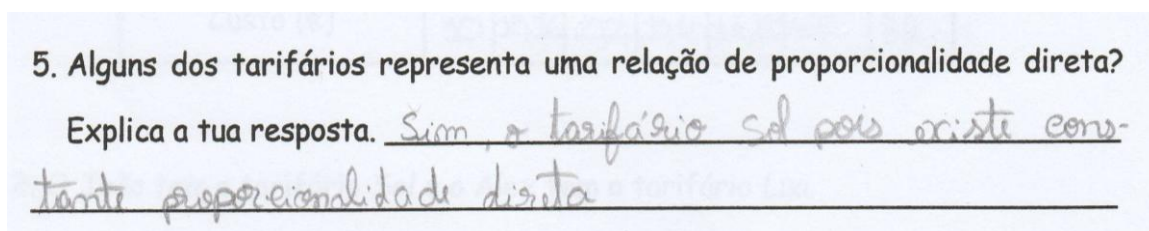 5. Alguns dos tarifários representa uma relação de proporcionalidade direta?
Explica a tua resposta. Sim, o tarifário Sol pois existe cons-
tante proporcionalidade direta